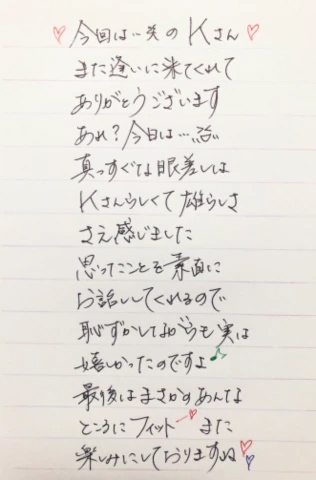 ♡今回は…笑のKさん♡
また逢いに来てくれて
ありがとうございます
あれ?今日は…
真っすぐな眼差しは
Kさんらしくて雄らしさ
さえ感じました
思ってことを素直に
お話ししてくれるので
恥ずかしながらも実は
嬉しかったのですよ♪
最後はまさかのあんな
ところにフィットー♡また
楽しみにしておりますね♡♡